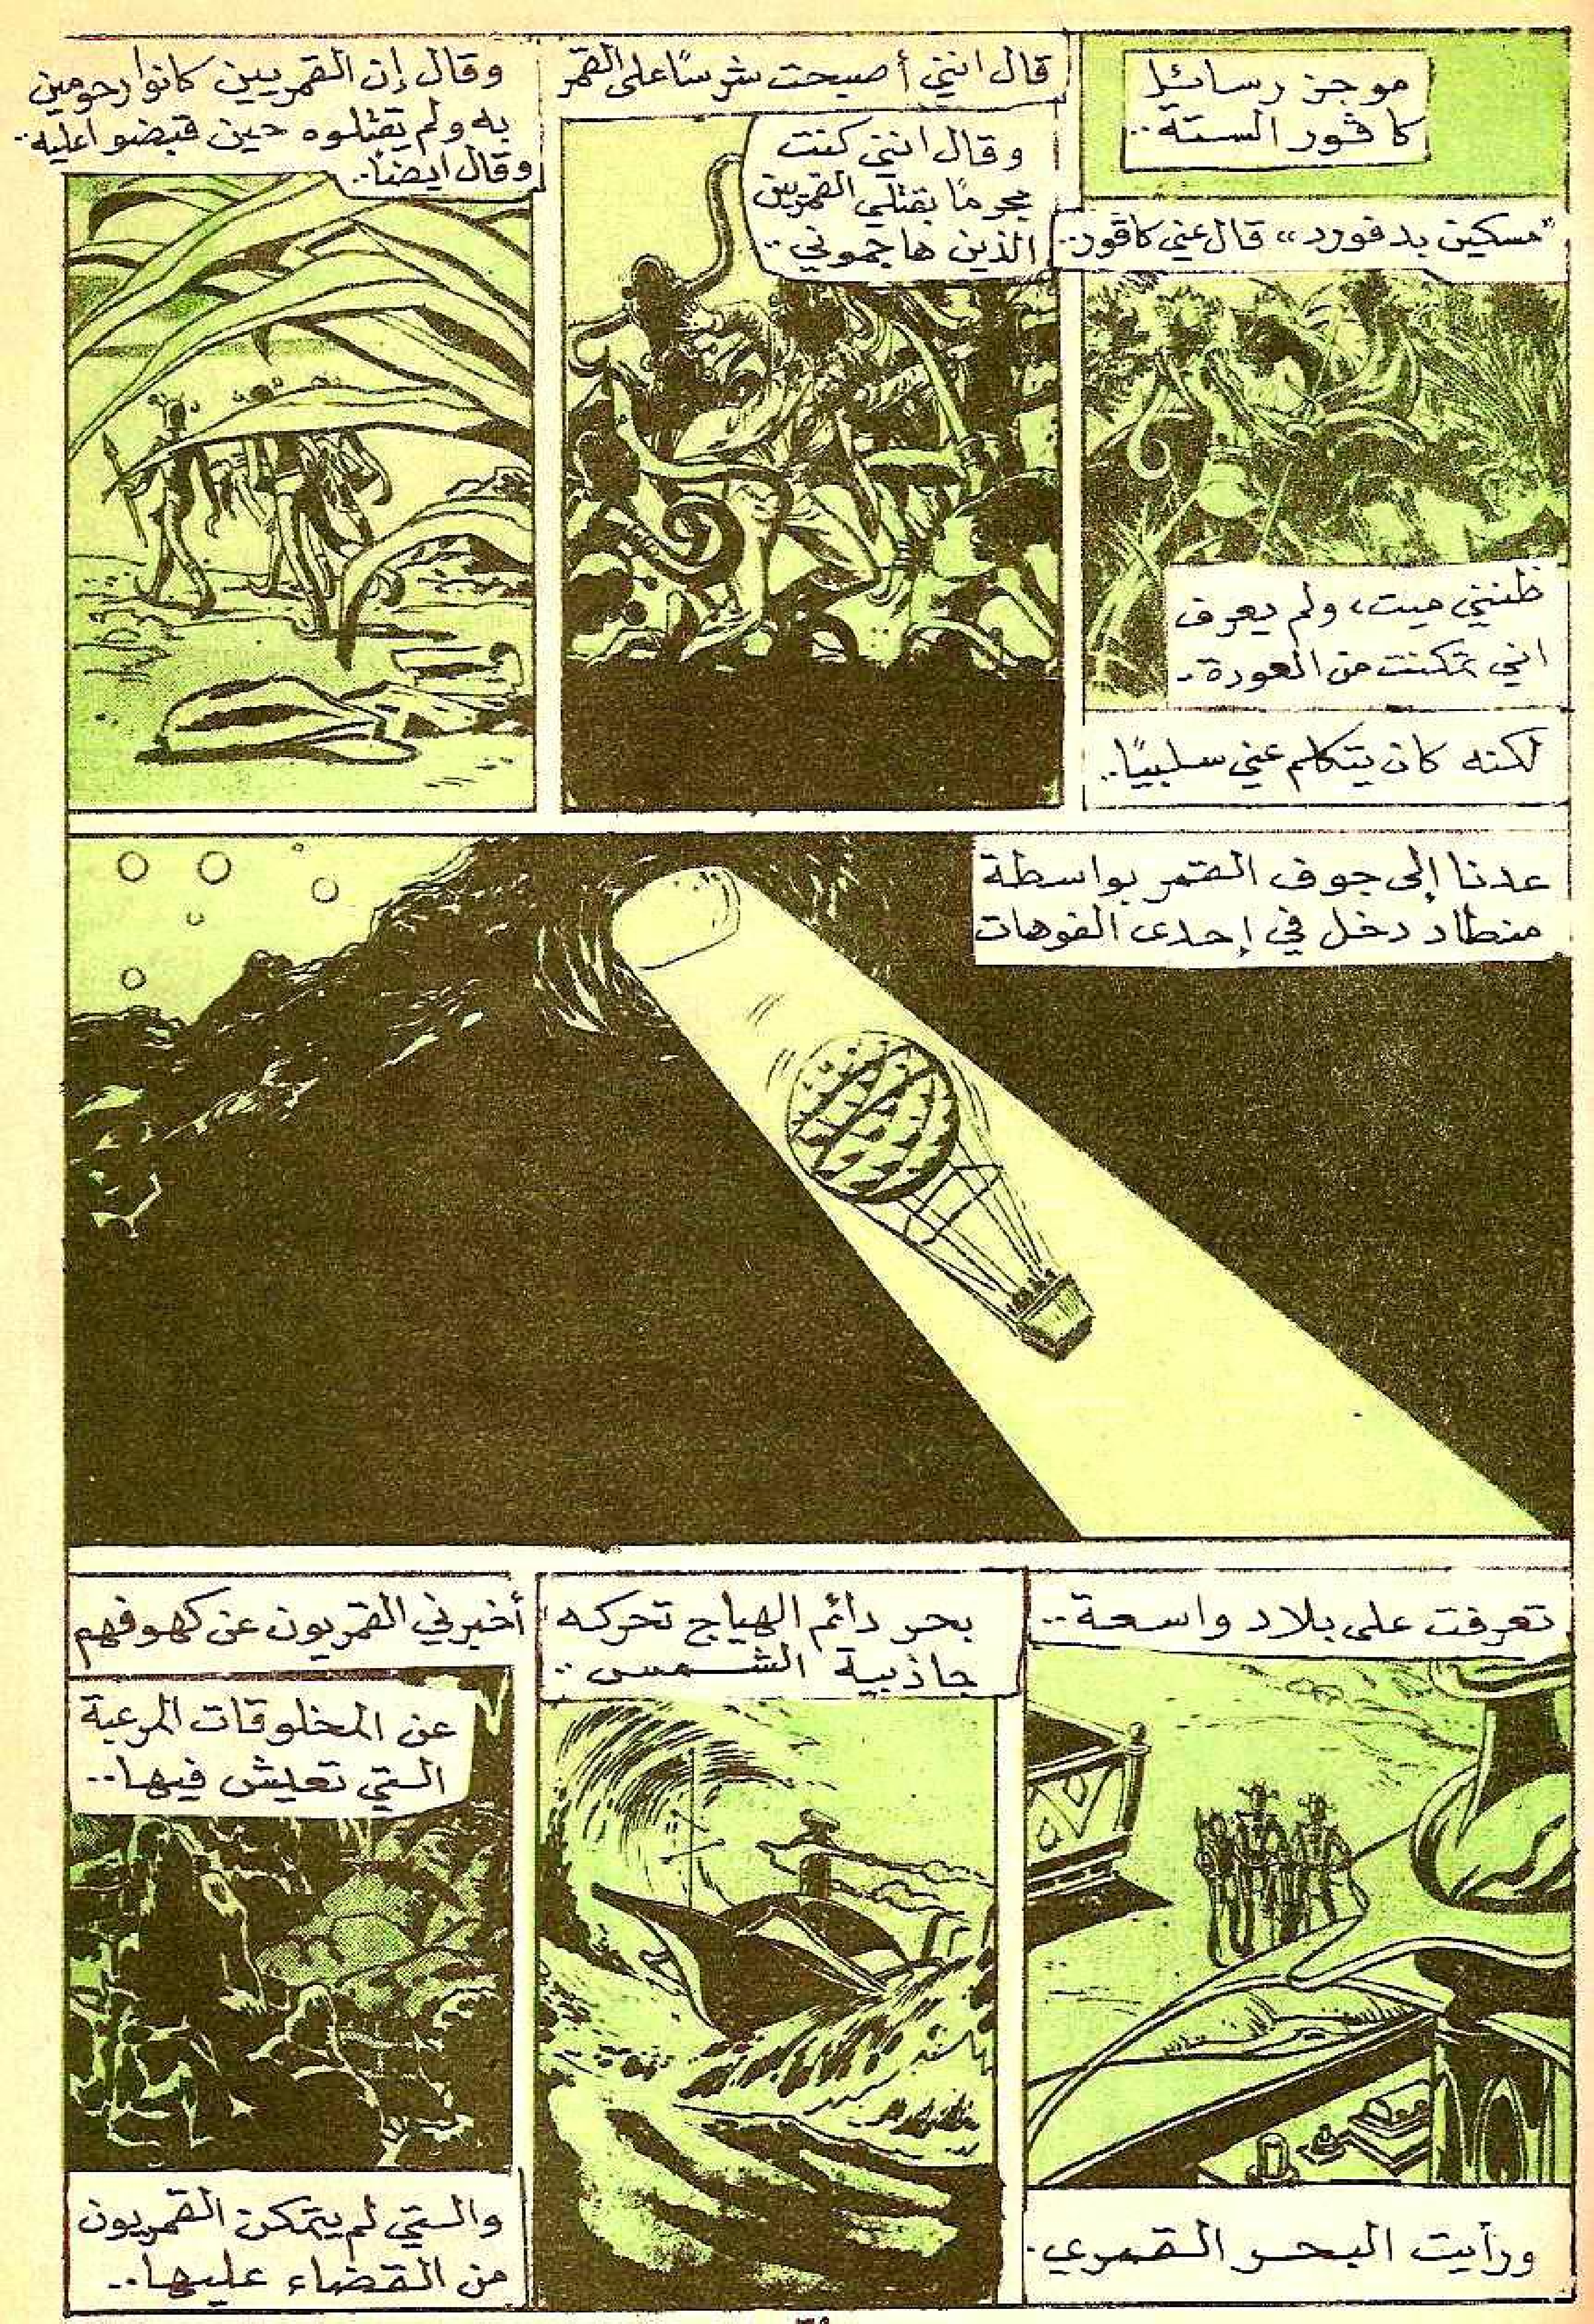 موجز رسائل
كافور الستة..
"مسكين بدفورد" قال عني كافور..
ظنني ميت، ولم يعرف
اني تمكنت من العودة..
لكنه كان يتكلم عني سلبيًا..
قال انني أصبحت شرسًا على القمر
وقال انني كنت
مجرمًا بقتلي القمريين
الذين هاجموني..
وقال إن القمريين كانوا رحومين
به ولم يقتلوه حين قبضوا عليه..
وقال ايضًا..
عدنا إلى جوف القمر بواسطة
منطاد دخل في إحدى الفوهات
تعرفت على بلاد واسعة..
ورأيت البحر القمري.
بحر دائم الهياج تحركه
جاذبية الشمس..
أخبرني القمريون عن كهوفهم
عن المخلوقات المرعبة
التي تعيش فيها..
والتي لم يتمكن القمريون
من القضاء عليها..